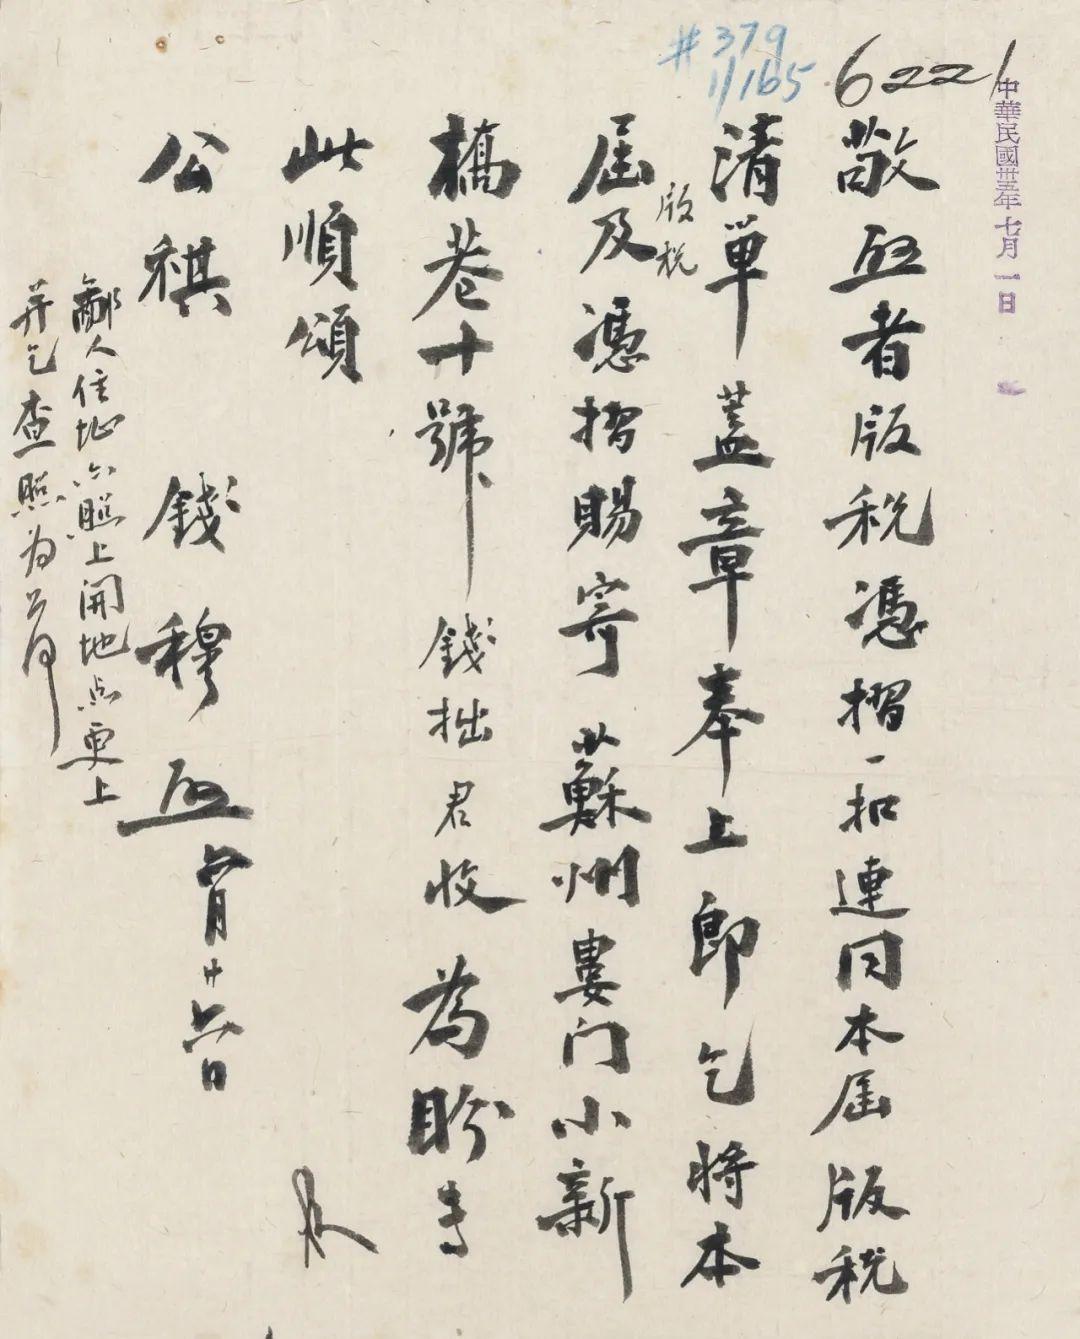 中華民國卅五年七月一日
6221
#379
1/165
敬啟者版税憑摺一扣連同本屆版税
清單蓋章奉上即乞將本
屆版税及憑摺賜寄蘇州婁门小新
橋巷十號錢拙君收為盼专
此順頌
公祺 錢穆啟 六月廿六日
鄙人住址亦照上開地点更上
并乞查照为荷